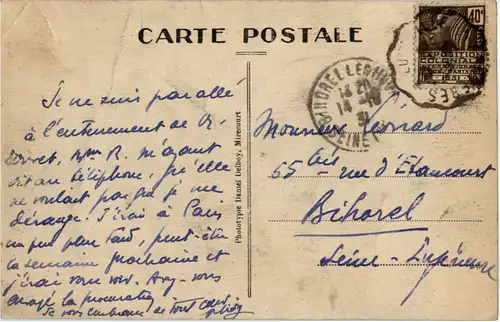 CARTE POSTALE
40c
EXPOSITION
COLONIALE
INTERNATIONALE
PARIS
1931
BIHOREL LES
13 20
14 -10
31
SEINE
Je ne suis pas allé
à l'enterrement de
Mme R. m'ayant
dit au téléphone, qu'elle
ne voulait pas que je me
dérange. J'irai à Paris
un peu plus tard, peut-être
la semaine prochaine et
j'irai vous voir. Avez-vous
envoyé la procuration
Je vous embrasse de tout cœur
Phototypie Daniel Delboy, Mirecourt
Monsieur
65 bis rue d'Elancourt
Bihorel
Seine-Inférieure